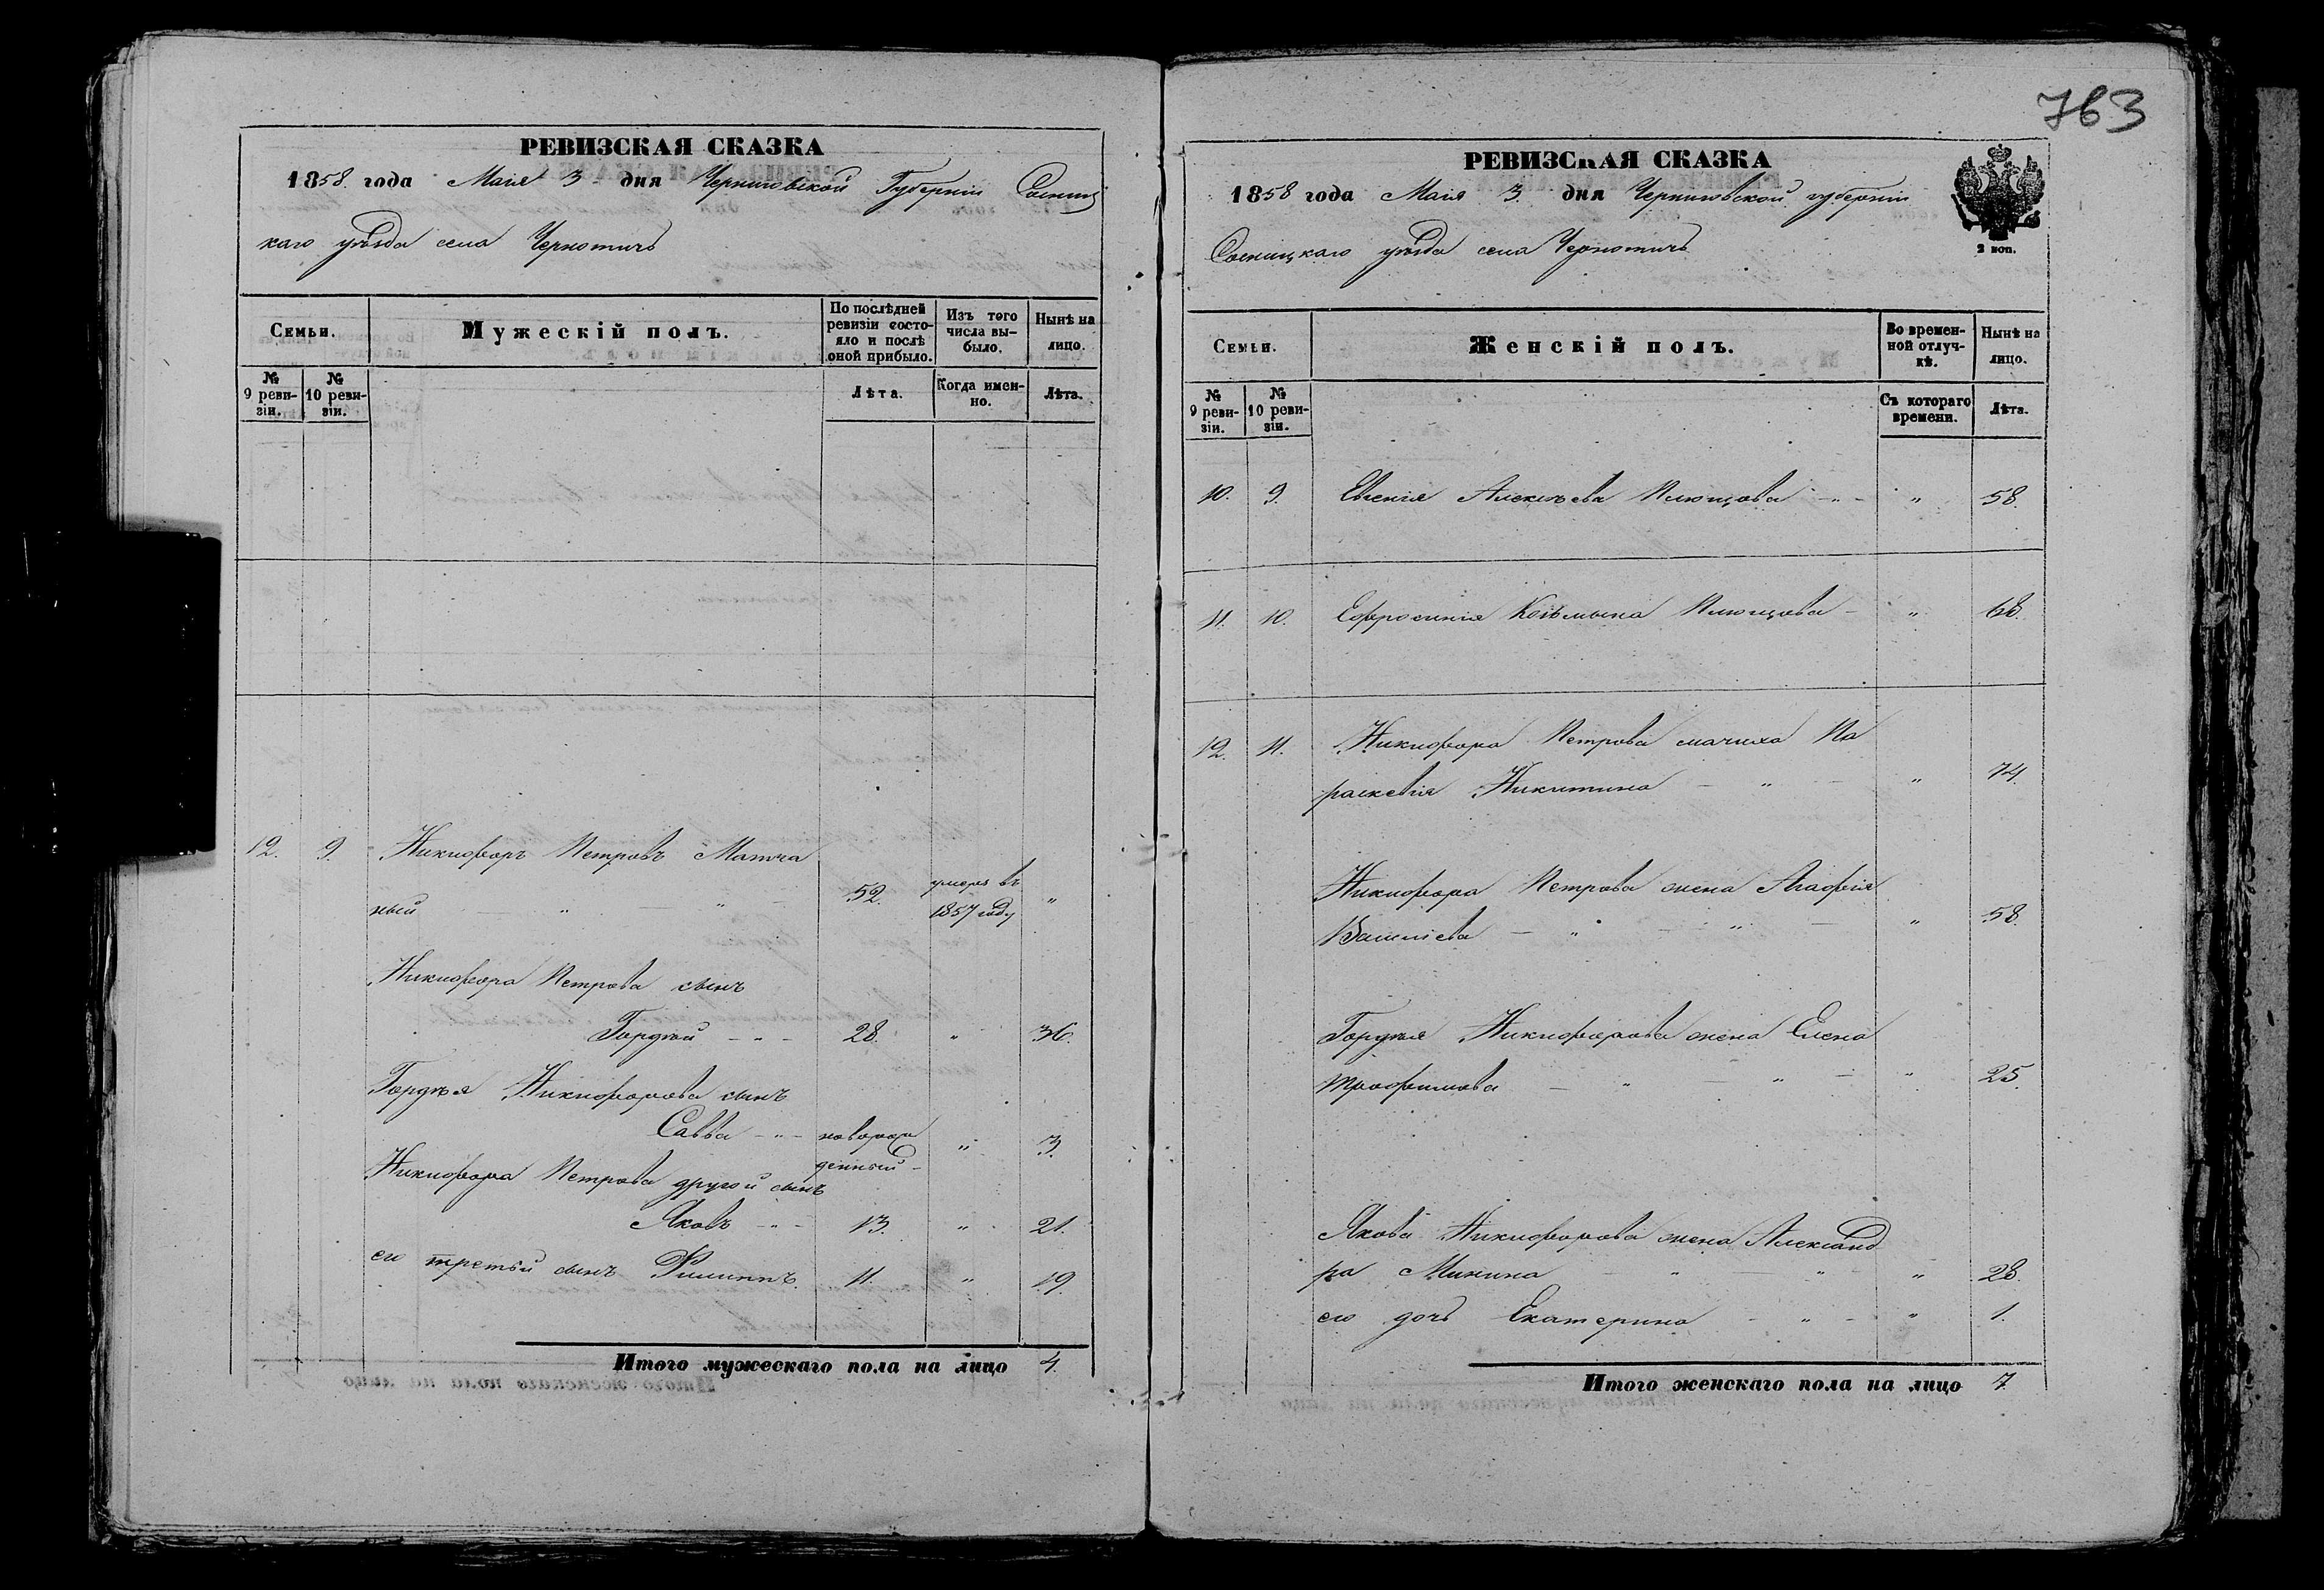 763
РЕВИЗСКАЯ СКАЗКА
1858. года Маія 3 дня Черниговской Губерніи Сосниц
каго уѣзда села Чернотичъ
Семьи.
Мужескій полъ.
По послѣдней ревизіи состояло и послѣ оной прибыло.
Изъ того числа выбыло.
Нынѣ на лицо.
№ 9 ревизіи.
№ 10 ревизіи.
Лѣта.
Когда именно.
Лѣта.
12. 9. Никифоръ Петровъ Матча
ный — „ — „ — 52. умеръ въ 1857 году „
Никифора Петрова сынъ
Гордѣй - „ - 28. „ 36.
Гордѣя Никифорова сынъ
Савва - „ - новорож
денный - „ 3.
Никифора Петрова другой сынъ
Яковъ - „ - 13. „ 21.
его третьй сынъ Филиппъ 11. „ 19.
Итого мужескаго пола на лицо 4.
РЕВИЗСКАЯ СКАЗКА
1858 года Маія 3. дня Черниговской губерніи
Сосницкаго уѣзда села Чернотичъ
2 коп.
Семьи.
Женскій полъ.
Во временной отлучкѣ.
Нынѣ на лицо.
№ 9 ревизіи.
№ 10 ревизіи.
Съ котораго времени.
Лѣта.
10. 9. Евгенія Алексѣева Плющова - „ - „ 58.
11. 10. Ефросинія Козьмина Плющова - „ 68.
12. 11. Никифора Петрова мачиха Па
раскевія Никитина — „ — „ 74.
Никифора Петрова жена Агафія
Василіева — „ — „ — „ 58.
Гордѣя Никифорова жена Елена
Трофимова — „ — „ — „ 25.
Якова Никифорова жена Александ
ра Минина — „ — „ — „ 28.
его дочь Екатерина - „ - „ 1.
Итого женскаго пола на лицо 7.